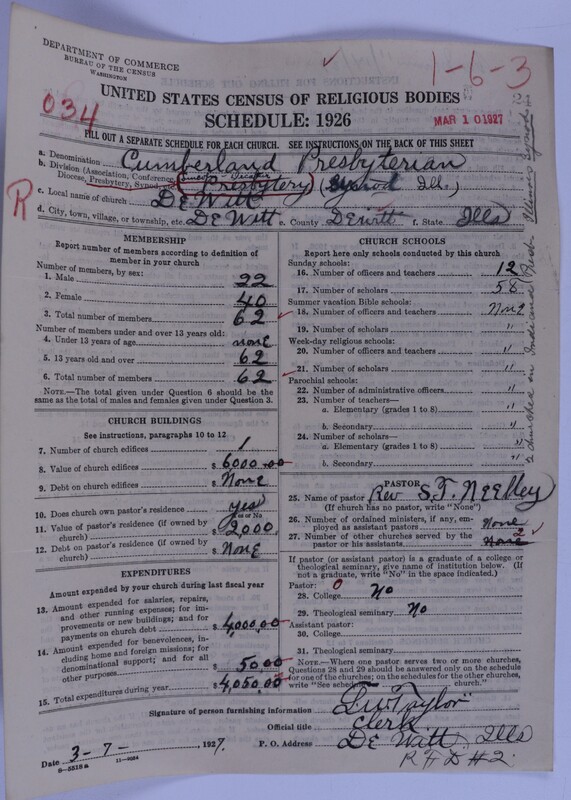 DEPARTMENT OF COMMERCE
BUREAU OF THE CENSUS
WASHINGTON
1-6-3
034
UNITED STATES CENSUS OF RELIGIOUS BODIES
SCHEDULE: 1926
MAR 10 1927
FILL OUT A SEPARATE SCHEDULE FOR EACH CHURCH. SEE INSTRUCTIONS ON THE BACK OF THIS SHEET
a. Denomination Cumberland Presbyterian
b. Division (Association, Conference, Diocese, Presbytery, Synod, etc.) Presbytery (Synod Ill.)
R
c. Local name of church DE Witt
d. City, town, village, or township, etc. DE Witt e. County DEwitt f. State Ills
MEMBERSHIP
Report number of members according to definition of
member in your church
Number of members, by sex:
1. Male 22
2. Female 40
3. Total number of members 62
Number of members under and over 13 years old:
4. Under 13 years of age none
5. 13 years old and over 62
6. Total number of members 62
NOTE.—The total given under Question 6 should be
same as the total of males and females given under Question 3.
CHURCH BUILDINGS
See instructions, paragraphs 10 to 12
7. Number of church edifices 1
8. Value of church edifices $ 6000.00
9. Debt on church edifices $ None
10. Does church own pastor's residence yes
Yes or No
11. Value of pastor's residence (if owned by
church) $ 2,000.
12. Debt on pastor's residence (if owned by
church) $ None
EXPENDITURES
Amount expended by your church during last fiscal year
13. Amount expended for salaries, repairs,
and other running expenses; for im-
provements or new buildings; and for
payments on church debt $ 4,000.00
14. Amount expended for benevolences, in-
cluding home and foreign missions; for
denominational support; and for all
other purposes $ 50.00
15. Total expenditures during year $ 4,050.00
CHURCH SCHOOLS
Report here only schools conducted by this church
Sunday schools:
16. Number of officers and teachers 12
17. Number of scholars 58
Summer vacation Bible schools:
18. Number of officers and teachers None
19. Number of scholars "
Week-day religious schools:
20. Number of officers and teachers "
21. Number of scholars "
Parochial schools:
22. Number of administrative officers "
23. Number of teachers—
a. Elementary (grades 1 to 8) "
b. Secondary "
24. Number of scholars—
a. Elementary (grades 1 to 8) "
b. Secondary "
PASTOR
25. Name of pastor Rev S.T. NEElley
(If church has no pastor, write "None")
26. Number of ordained ministers, if any, em-
ployed as assistant pastors None
27. Number of other churches served by the
pastor or his assistants None 2
If pastor (or assistant pastor) is a graduate of a college or
theological seminary, give name of institution below. (If
not a graduate, write "No" in the space indicated.)
Pastor:
28. College No
29. Theological seminary No
Assistant pastor:
30. College
31. Theological seminary
NOTE.—Where one pastor serves two or more churches,
Questions 28 and 29 should be answered only on the schedule
for one of the churches; on the schedules for the other churches,
write "See schedule church."
2 churches in Indiana Illinois Synod
Signature of person furnishing information Taylor
Official title Clerk
Date 3-7- 1927. P. O. Address DE Witt, Ills
R F D #2.
8-5518 a 11-9024